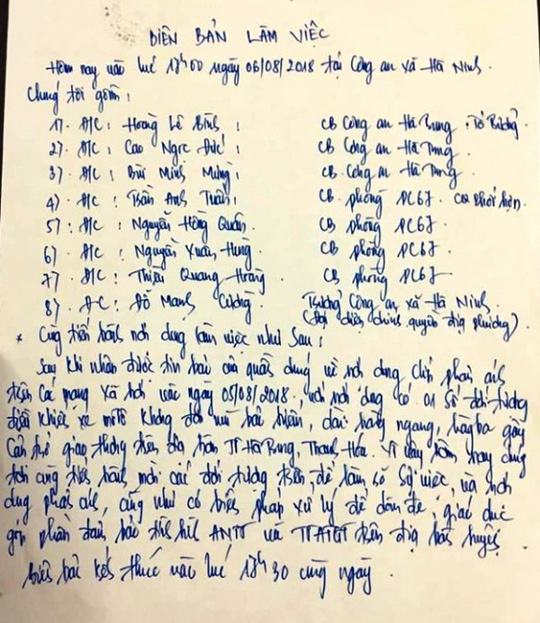 BIÊN BẢN LÀM VIỆC
Hôm nay vào lúc 17h00 ngày 06/08/2018 tại Công an xã Hà Ninh.
Chúng tôi gồm:
1). Đ/C: Hoàng Lê Bình: CB Công an Hà Trung. Tổ trưởng.
2). Đ/C: Cao Ngọc Đức: CB Công an Hà Trung.
3). Đ/C: Bùi Minh Mừng: CB Công an Hà Trung
4). Đ/C: Trần Anh Tuấn: CB. phòng PC67. CQ phối hợp.
5). Đ/C: Nguyễn Hồng Quân. CB phòng PC67.
6). Đ/C: Nguyễn Xuân Hưng. CB phòng PC67
7). Đ/C: Thiều Quang Hoàng. CB phòng PC67
8). Đ/C: Đỗ Mạnh Cường. Trưởng Công an xã Hà Ninh.
(Đại diện chính quyền địa phương)
* Cùng tiến hành nội dung làm việc như sau:
Sau khi nhận được tin báo của quần chúng về nội dung clip phản ánh
trên các mạng xã hội vào ngày 05/08/2018, với nội dung có 01 số đối tượng
điều khiển xe môtô không đội mũ bảo hiểm, dàn hàng ngang, hàng ba gây
cản trở giao thông trên địa bàn TT Hà Trung, Thanh Hóa. Vì vậy hôm nay chúng
tôi cùng tiến hành mời các đối tượng trên, để làm rõ sự việc, và nội
dung phản ánh, cũng như có biện pháp xử lý để răn đe, giáo dục
góp phần đảm bảo tình hình ANTT và TTATGT trên địa bàn huyện
biên bản kết thúc vào lúc 17h30 cùng ngày.